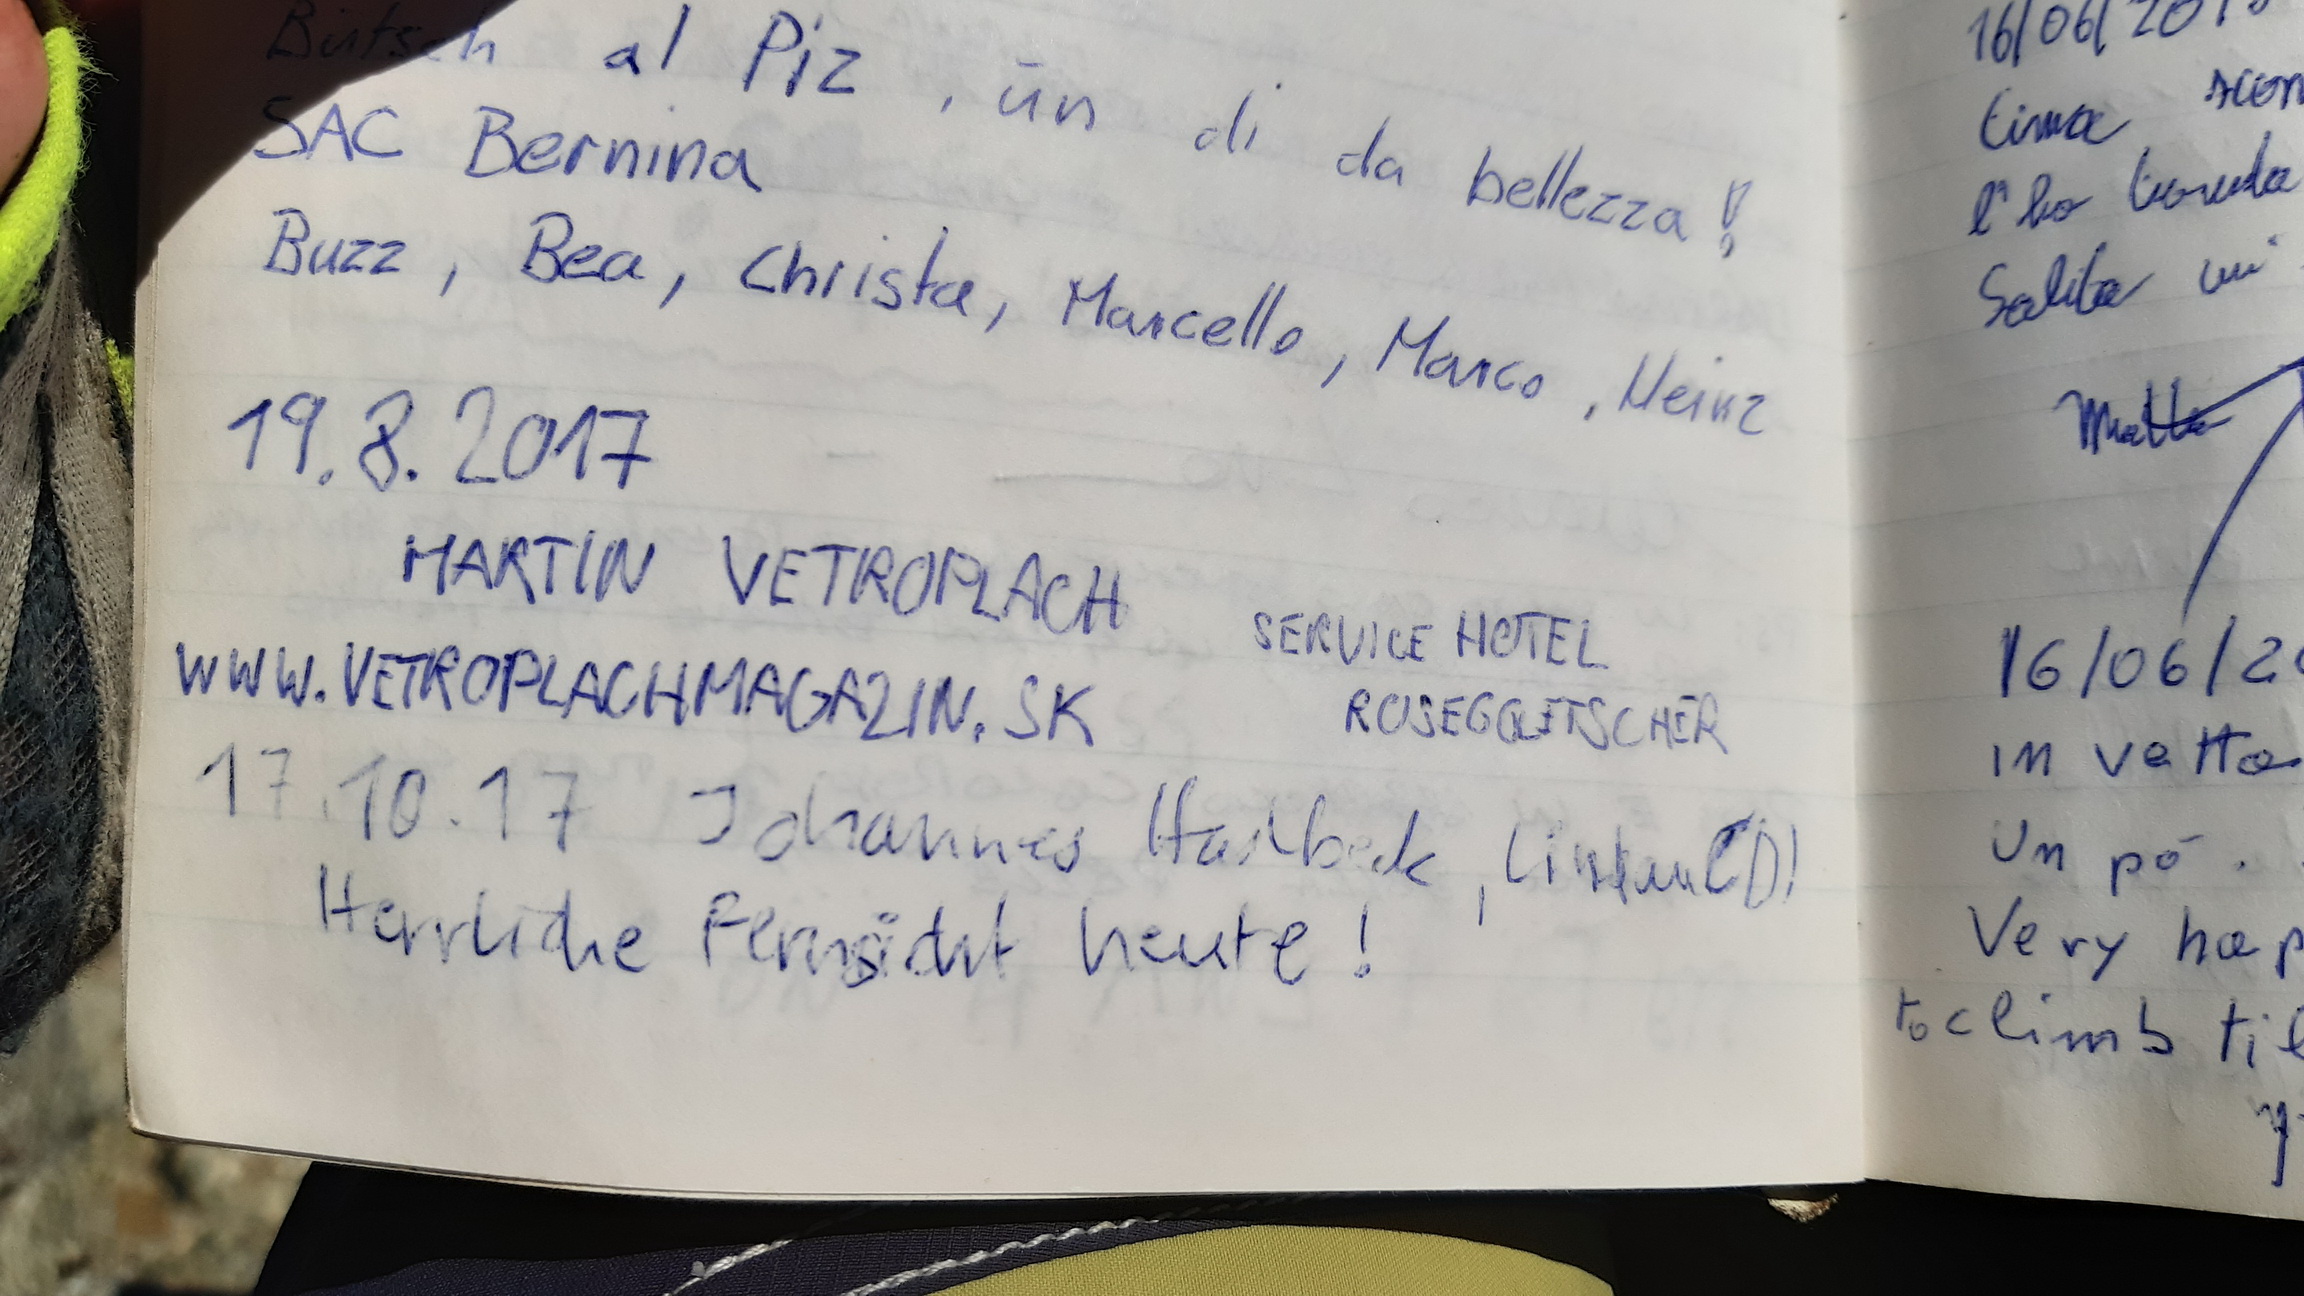 Bütsch al Piz, ün di da bellezza!
SAC Bernina
Buzz, Bea, Christa, Marcello, Marco, Heinz
19.8.2017
MARTIN VETROPLACH
WWW.VETROPLACHMAGAZIN.SK
SERVICE HOTEL
ROSEGGLETSCHER
17.10.17 Johannes
Herrliche Fernsicht heute!
16/06/201
cima
l'ho
Salita
16/06/20
in vetta
Un pó.
Very hap
to climb til